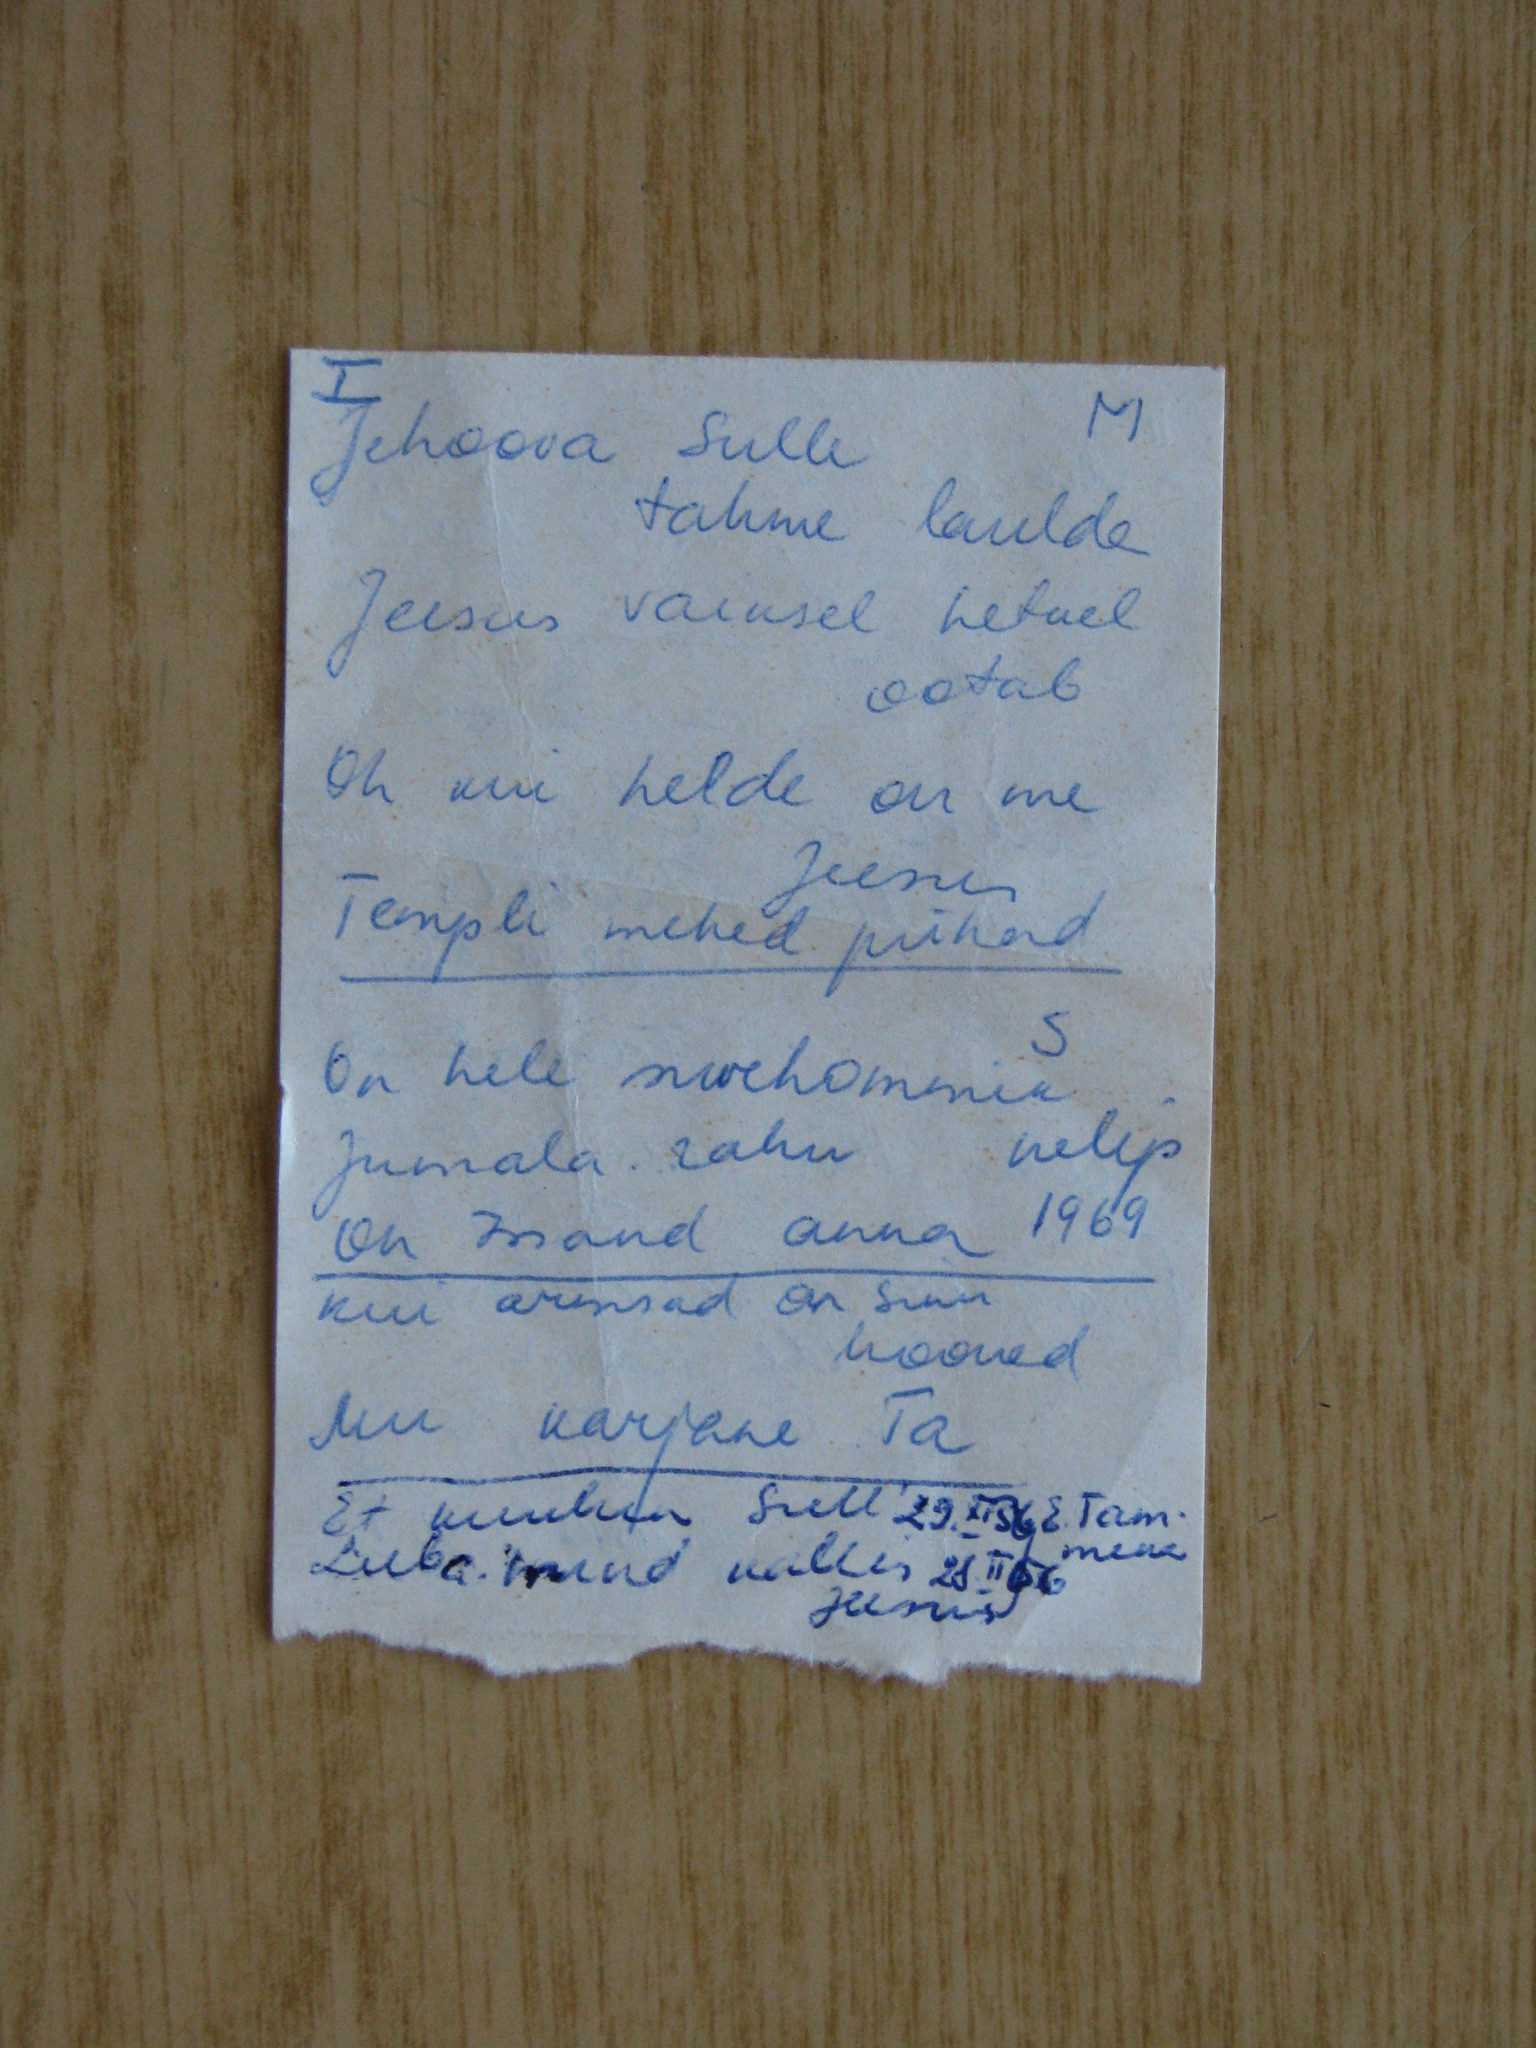 I
M
Jehoova Sulle
tahme laulda
Jeesus vaiksel hetkel
ootab
Oh kui helde on me
Jeesus
Templi mehed pühad
S
On hele suvehommik
Jumala rahu nelip
Oh Issand anna 1969
kui armsad on sinu
hooned
Mu karjane Ta
Et kuulun Sull' 29.XI 56 E. Tam-
Luba mind kallis 28 II 66
Jeesus